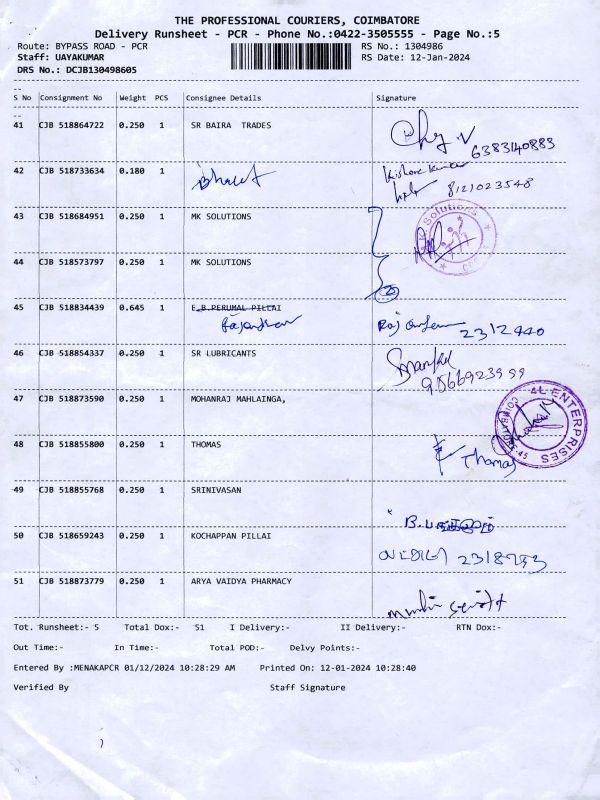 THE PROFESSIONAL COURIERS, COIMBATORE
Delivery Runsheet - PCR - Phone No.:0422-3505555 - Page No.:5
Route: BYPASS ROAD - PCR RS No.: 1304986
Staff: UAYAKUMAR RS Date: 12-Jan-2024
DRS No.: DCJB130498605
--
S No Consignment No Weight PCS Consignee Details Signature
--
41 CJB 518864722 0.250 1 SR BAIRA TRADES
6383140883
42 CJB 518733634 0.180 1 Bharat Kishore Kumar
8121023548
43 CJB 518684951 0.250 1 MK SOLUTIONS
Solutions
44 CJB 518573797 0.250 1 MK SOLUTIONS
2
45 CJB 518834439 0.645 1 E.B.PERUMAL PILLAI
2312440
46 CJB 518854337 0.250 1 SR LUBRICANTS
9566923999
47 CJB 518873590 0.250 1 MOHANRAJ MAHLAINGA,
4L ENTERPRISES
48 CJB 518855800 0.250 1 THOMAS
Thomas
49 CJB 518855768 0.250 1 SRINIVASAN
50 CJB 518659243 0.250 1 KOCHAPPAN PILLAI
51 CJB 518873779 0.250 1 ARYA VAIDYA PHARMACY
Tot. Runsheet:- 5 Total Dox:- 51 I Delivery:- II Delivery:- RTN Dox:-
Out Time:- In Time:- Total POD:- Delvy Points:-
Entered By :MENAKAPCR 01/12/2024 10:28:29 AM Printed On: 12-01-2024 10:28:40
Verified By Staff Signature